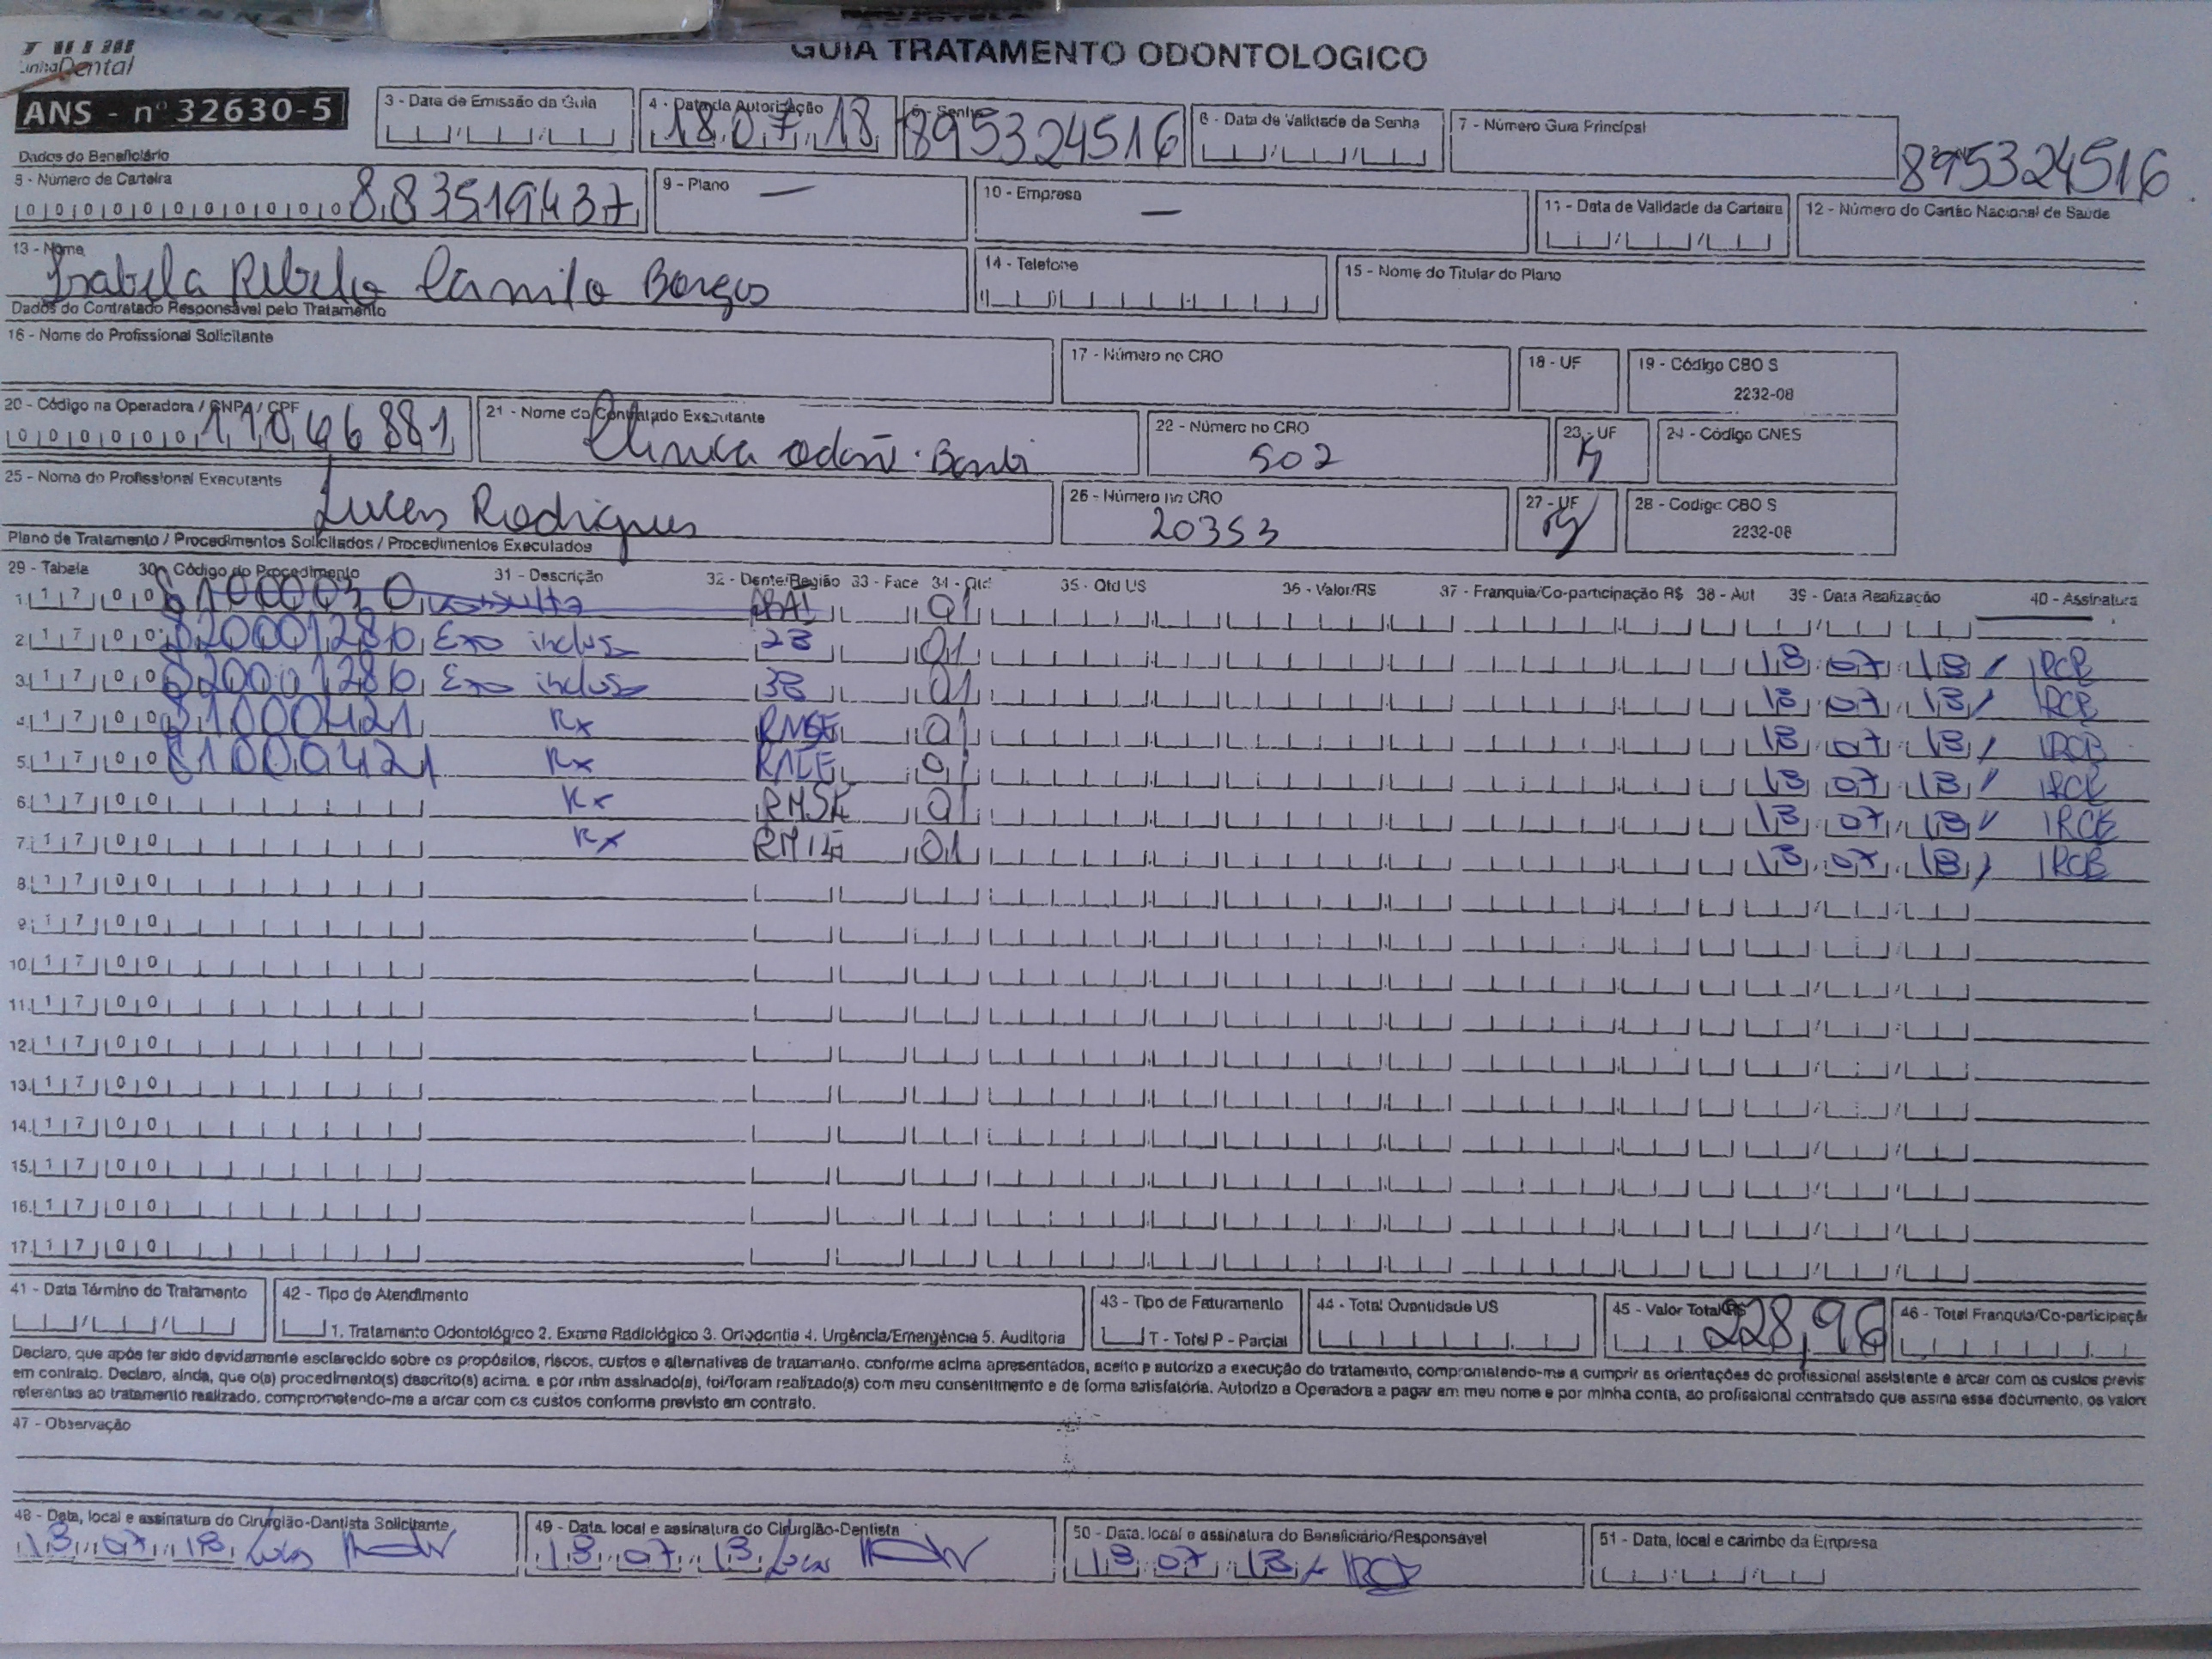 Linha Dental
GUIA TRATAMENTO ODONTOLOGICO
ANS - nº 32630-5
3 - Data de Emissão da Guia
4 - Data da Autorização 18 07 18
5 - Senha 895324516
6 - Data de Validade da Senha
7 - Número Guia Principal
895324516
Dados do Beneficiário
8 - Número de Carteira 00000000000883519437
9 - Plano —
10 - Empresa —
11 - Data de Validade da Carteira
12 - Número do Cartão Nacional de Saúde
13 - Nome Isabela Rebelo Camilo Borges
14 - Telefone
15 - Nome do Titular do Plano
Dados do Contratado Responsável pelo Tratamento
16 - Nome do Profissional Solicitante
17 - Número no CRO
18 - UF
19 - Código CBO S 2232-08
20 - Código na Operadora / CNPJ / CPF 00000011046881
21 - Nome do Contratado Executante Clinica odon. Bambi
22 - Número no CRO 502
23 - UF
24 - Código CNES
25 - Nome do Profissional Executante Lucas Rodrigues
26 - Número no CRO 20353
27 - UF
28 - Código CBO S 2232-08
Plano de Tratamento / Procedimentos Solicitados / Procedimentos Executados
29 - Tabela 30 - Código do Procedimento 31 - Descrição 32 - Dente/Região 33 - Face 34 - Qtd 35 - Qtd US 36 - Valor/R$ 37 - Franquia/Co-participação R$ 38 - Aut 39 - Data Realização 40 - Assinatura
1. 17 00 81000030 consulta 01
2. 17 00 82001286 Exo incluso 28 01 18 07 18 IRCB
3. 17 00 82001286 Exo incluso 38 01 18 07 18 IRCB
4. 17 00 81000421 Rx RMSE 01 18 07 18 IRCB
5. 17 00 81000421 Rx 01 18 07 18 IRCB
6. 17 00 Rx 01 18 07 18 IRCB
7. 17 00 Rx RMIE 01 18 07 18 IRCB
8. 17 00
9. 17 00
10. 17 00
11. 17 00
12. 17 00
13. 17 00
14. 17 00
15. 17 00
16. 17 00
17. 17 00
41 - Data Término do Tratamento
42 - Tipo de Atendimento
1. Tratamento Odontológico 2. Exame Radiológico 3. Ortodontia 4. Urgência/Emergência 5. Auditoria
43 - Tipo de Faturamento
T - Total P - Parcial
44 - Total Quantidade US
45 - Valor Total R$ 228,96
46 - Total Franquia/Co-participaçã
Declaro, que após ter sido devidamente esclarecido sobre os propósitos, riscos, custos e alternativas de tratamento, conforme acima apresentados, aceito e autorizo a execução do tratamento, comprometendo-me a cumprir as orientações do profissional assistente e arcar com os custos previs
em contrato. Declaro, ainda, que o(s) procedimento(s) descrito(s) acima, e por mim assinado(s), foi/foram realizado(s) com meu consentimento e de forma satisfatória. Autorizo a Operadora a pagar em meu nome e por minha conta, ao profissional contratado que assina esse documento, os valore
referentes ao tratamento realizado, comprometendo-me a arcar com os custos conforme previsto em contrato.
47 - Observação
48 - Data, local e assinatura do Cirurgião-Dentista Solicitante
18 07 18 Lucas
49 - Data, local e assinatura do Cirurgião-Dentista
18 07 18 Lucas
50 - Data, local e assinatura do Beneficiário/Responsável
18 07 18
51 - Data, local e carimbo da Empresa